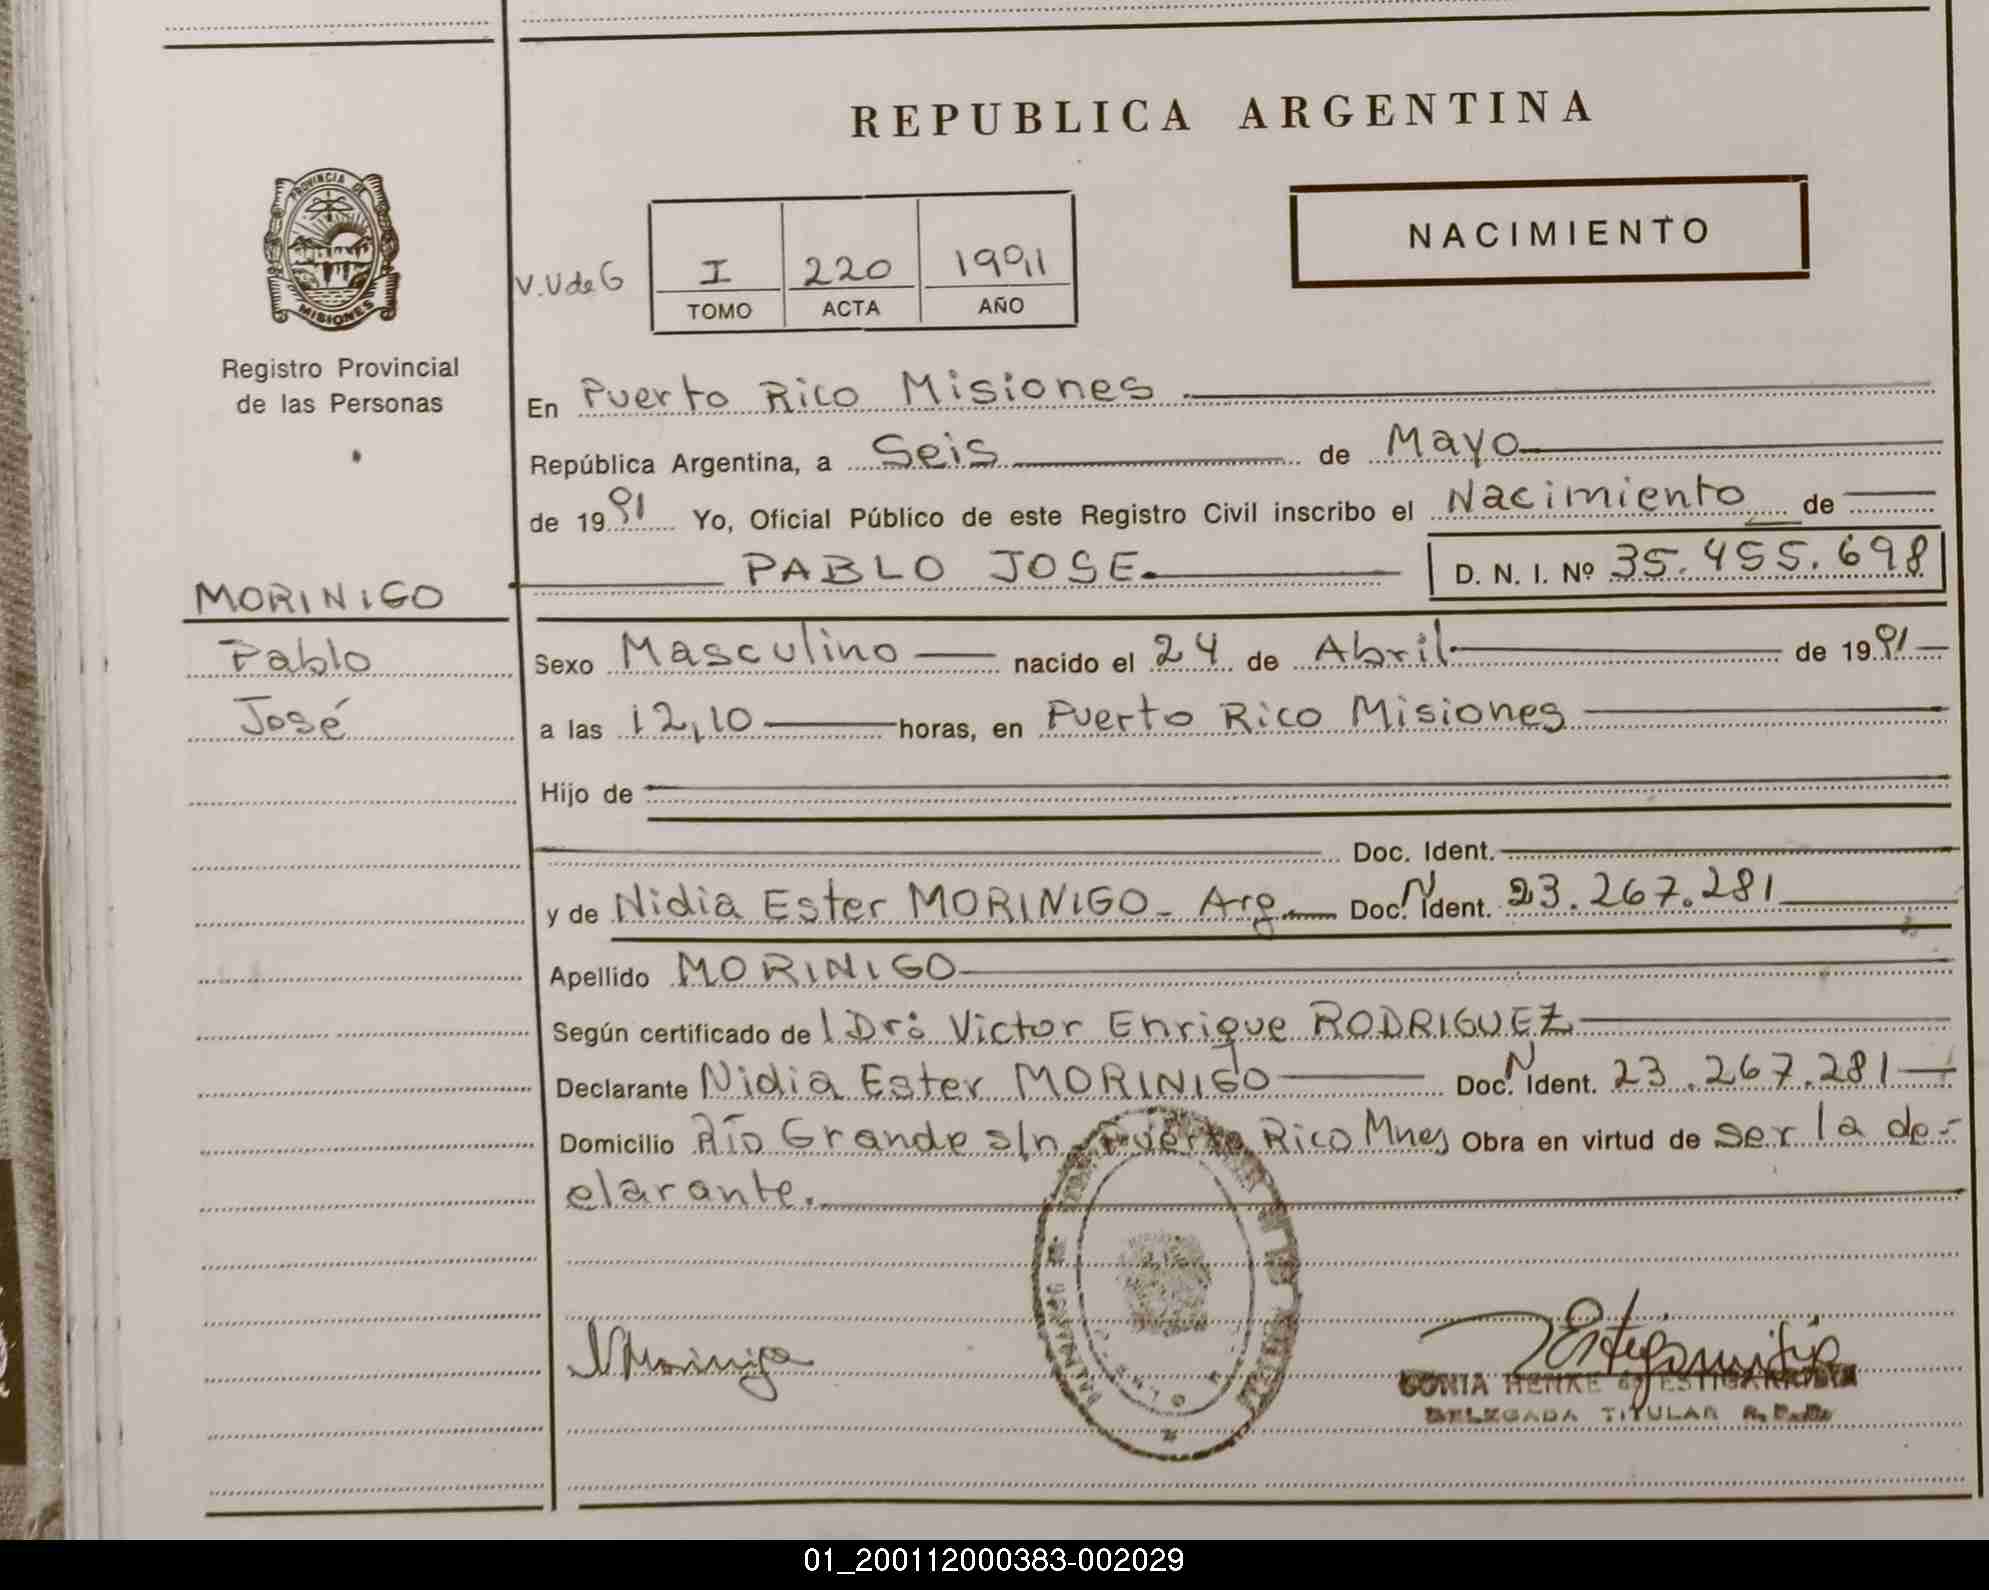 REPUBLICA ARGENTINA
PROVINCIA DE
MISIONES
NACIMIENTO
V.V de G
I 220 1991
TOMO ACTA AÑO
Registro Provincial
de las Personas
En Puerto Rico Misiones
República Argentina, a Seis de Mayo
de 1991 Yo, Oficial Público de este Registro Civil inscribo el Nacimiento de
PABLO JOSE D. N. I. Nº 35.455.698
MORINIGO
Pablo
José
Sexo Masculino nacido el 24 de Abril de 1991
a las 12,10 horas, en Puerto Rico Misiones
Hijo de
Doc. Ident.
y de Nidia Ester MORINIGO - Arg. Doc. N Ident. 23.267.281
Apellido MORINIGO
Según certificado de l Dr: Victor Enrique RODRIGUEZ
Declarante Nidia Ester MORINIGO Doc. N Ident. 23.267.281
Domicilio Río Grande s/n Puerto Rico Mnes Obra en virtud de ser la de-
clarante.
NMorinigo
SONIA HENKE de ESTIGARRIBIA
DELEGADA TITULAR
01_200112000383-002029